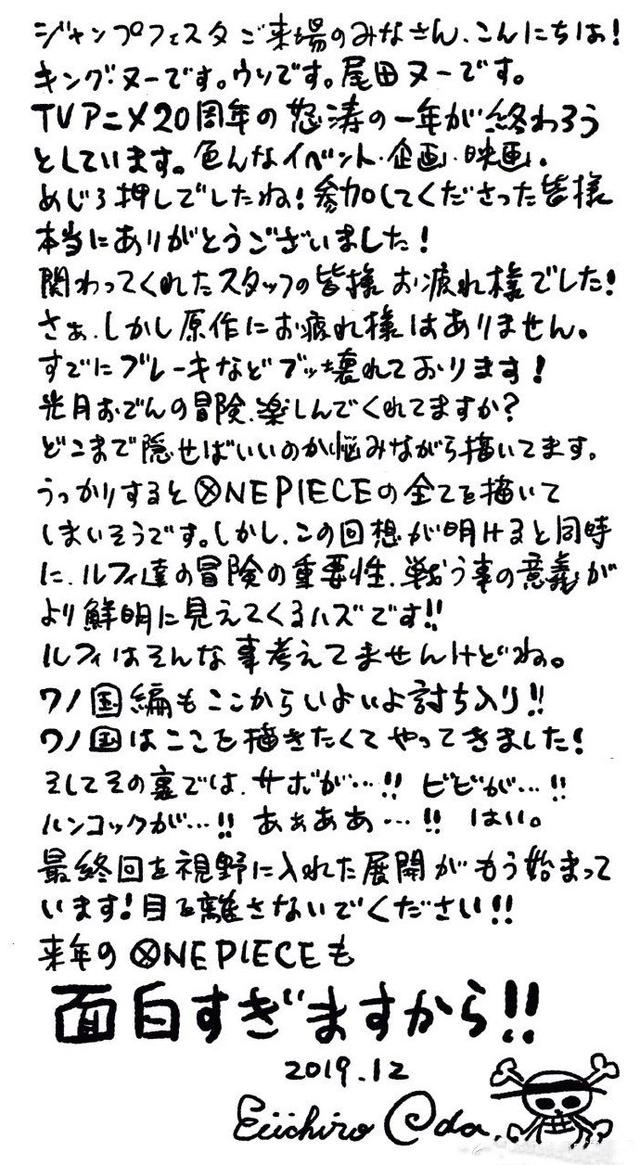 ジャンプフェスタご来場のみなさん、こんにちは!
キング・ヌーです。ウソです。尾田ヌーです。
TVアニメ20周年の怒涛の一年が終わろう
としています。色んなイベント・企画・映画、
めじろ押しでしたね!参加してくださった皆様
本当にありがとうございました!
関わってくれたスタッフの皆様お疲れ様でした!
さぁ、しかし原作にお疲れ様はありません。
すでにブレーキなどブッ壊れております!
光月おでんの冒険、楽しんでくれてますか?
どこまで隠せばいいのか悩みながら描いてます。
うっかりするとONE PIECEの全てを描いて
しまいそうです。しかし、この回想が明けると同時
に、ルフィ達の冒険の重要性、戦う事の意義が
より鮮明に見えてくるハズです!!
ルフィはそんな事考えてませんけどね。
ワノ国編もここからいよいよ討ち入り!!
ワノ国はここを描きたくてやってきました!
そしてその裏では、サボが…!! ビビが…!!
ハンコックが…!! あぁああ…!! はい。
最終回を視野に入れた展開がもう始まって
います!目を離さないでください!!
来年のONE PIECEも
面白すぎますから!!
2019.12
Eiichiro Oda.